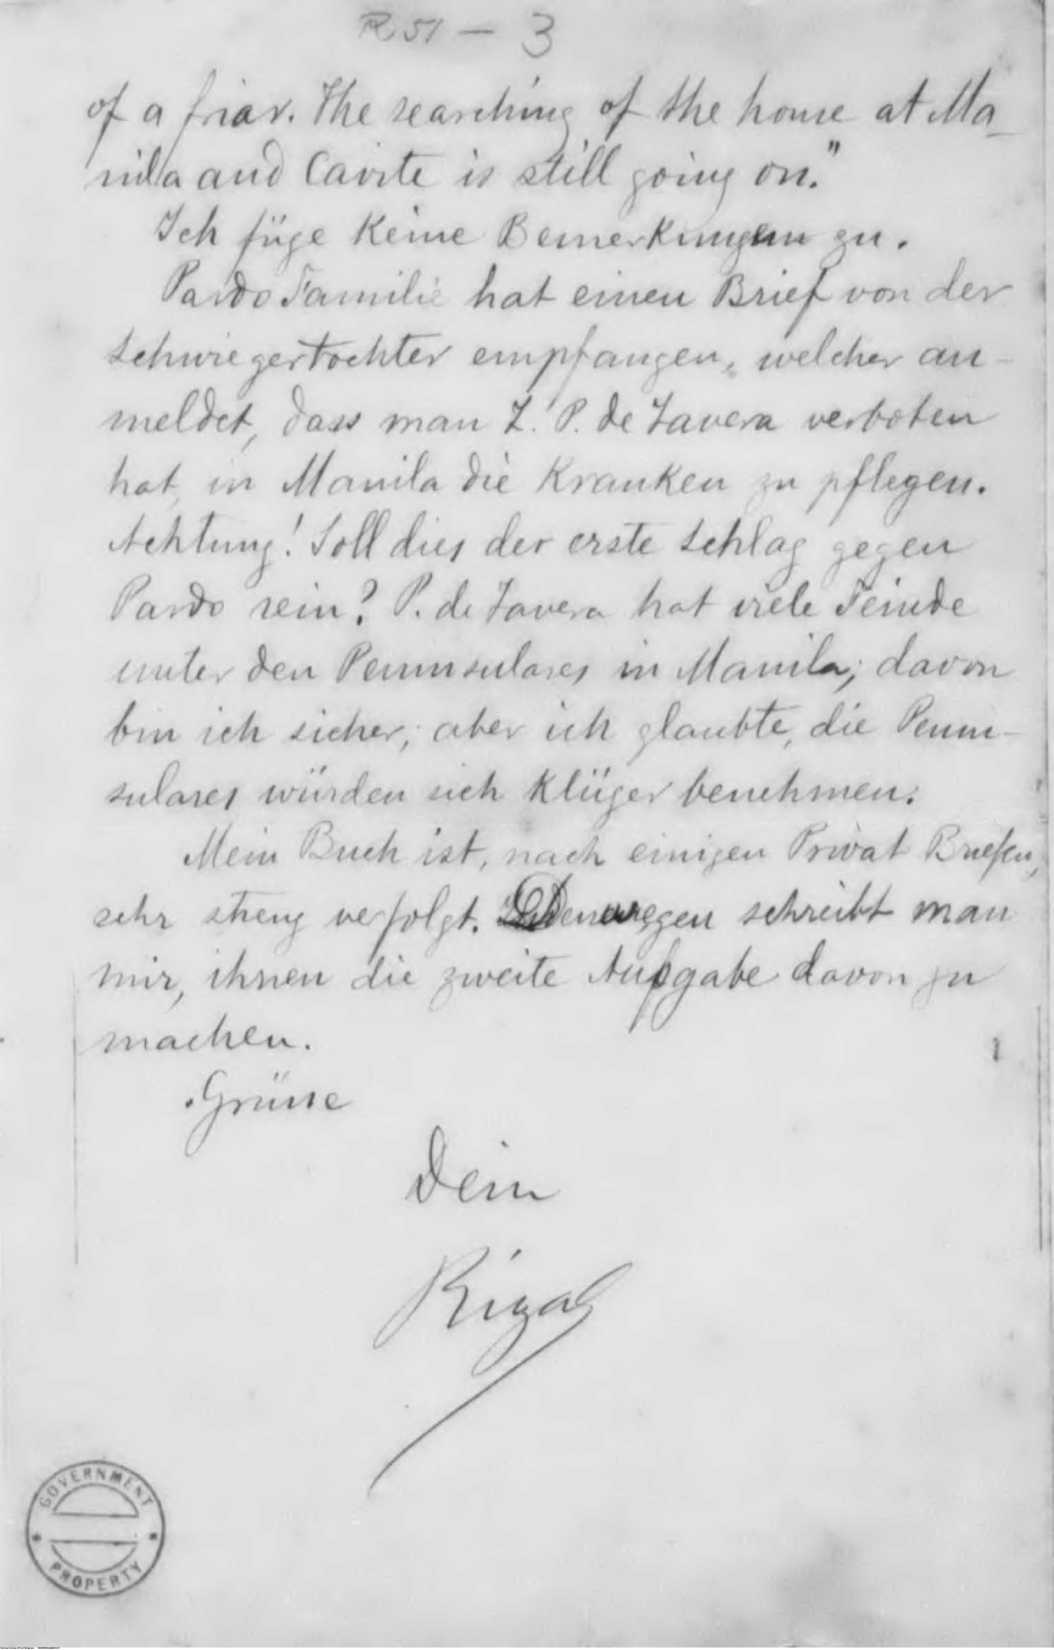 R 51 — 3
of a friar. The searching of the house at Ma-
nila and Cavite is still going on."
Ich füge keine Bemerkungen zu.
Pardo Familie hat einen Brief von der
Schwiegertochter empfangen, welcher an-
meldet, dass man T. P. de Tavera verboten
hat, in Manila die Kranken zu pflegen.
Achtung! Soll dies der erste Schlag gegen
Pardo sein? P. de Tavera hat viele Feinde
unter den Peninsulares in Manila; davon
bin ich sicher; aber ich glaubte, die Penin-
sulares würden sich klüger benehmen.
Mein Buch ist, nach einigen Privat Briefen,
sehr streng verfolgt. Denwegen schreibt man
mir, ihnen die zweite Aufgabe davon zu
machen.
Grüsse
Dein
Rizal
GOVERNMENT
PROPERTY